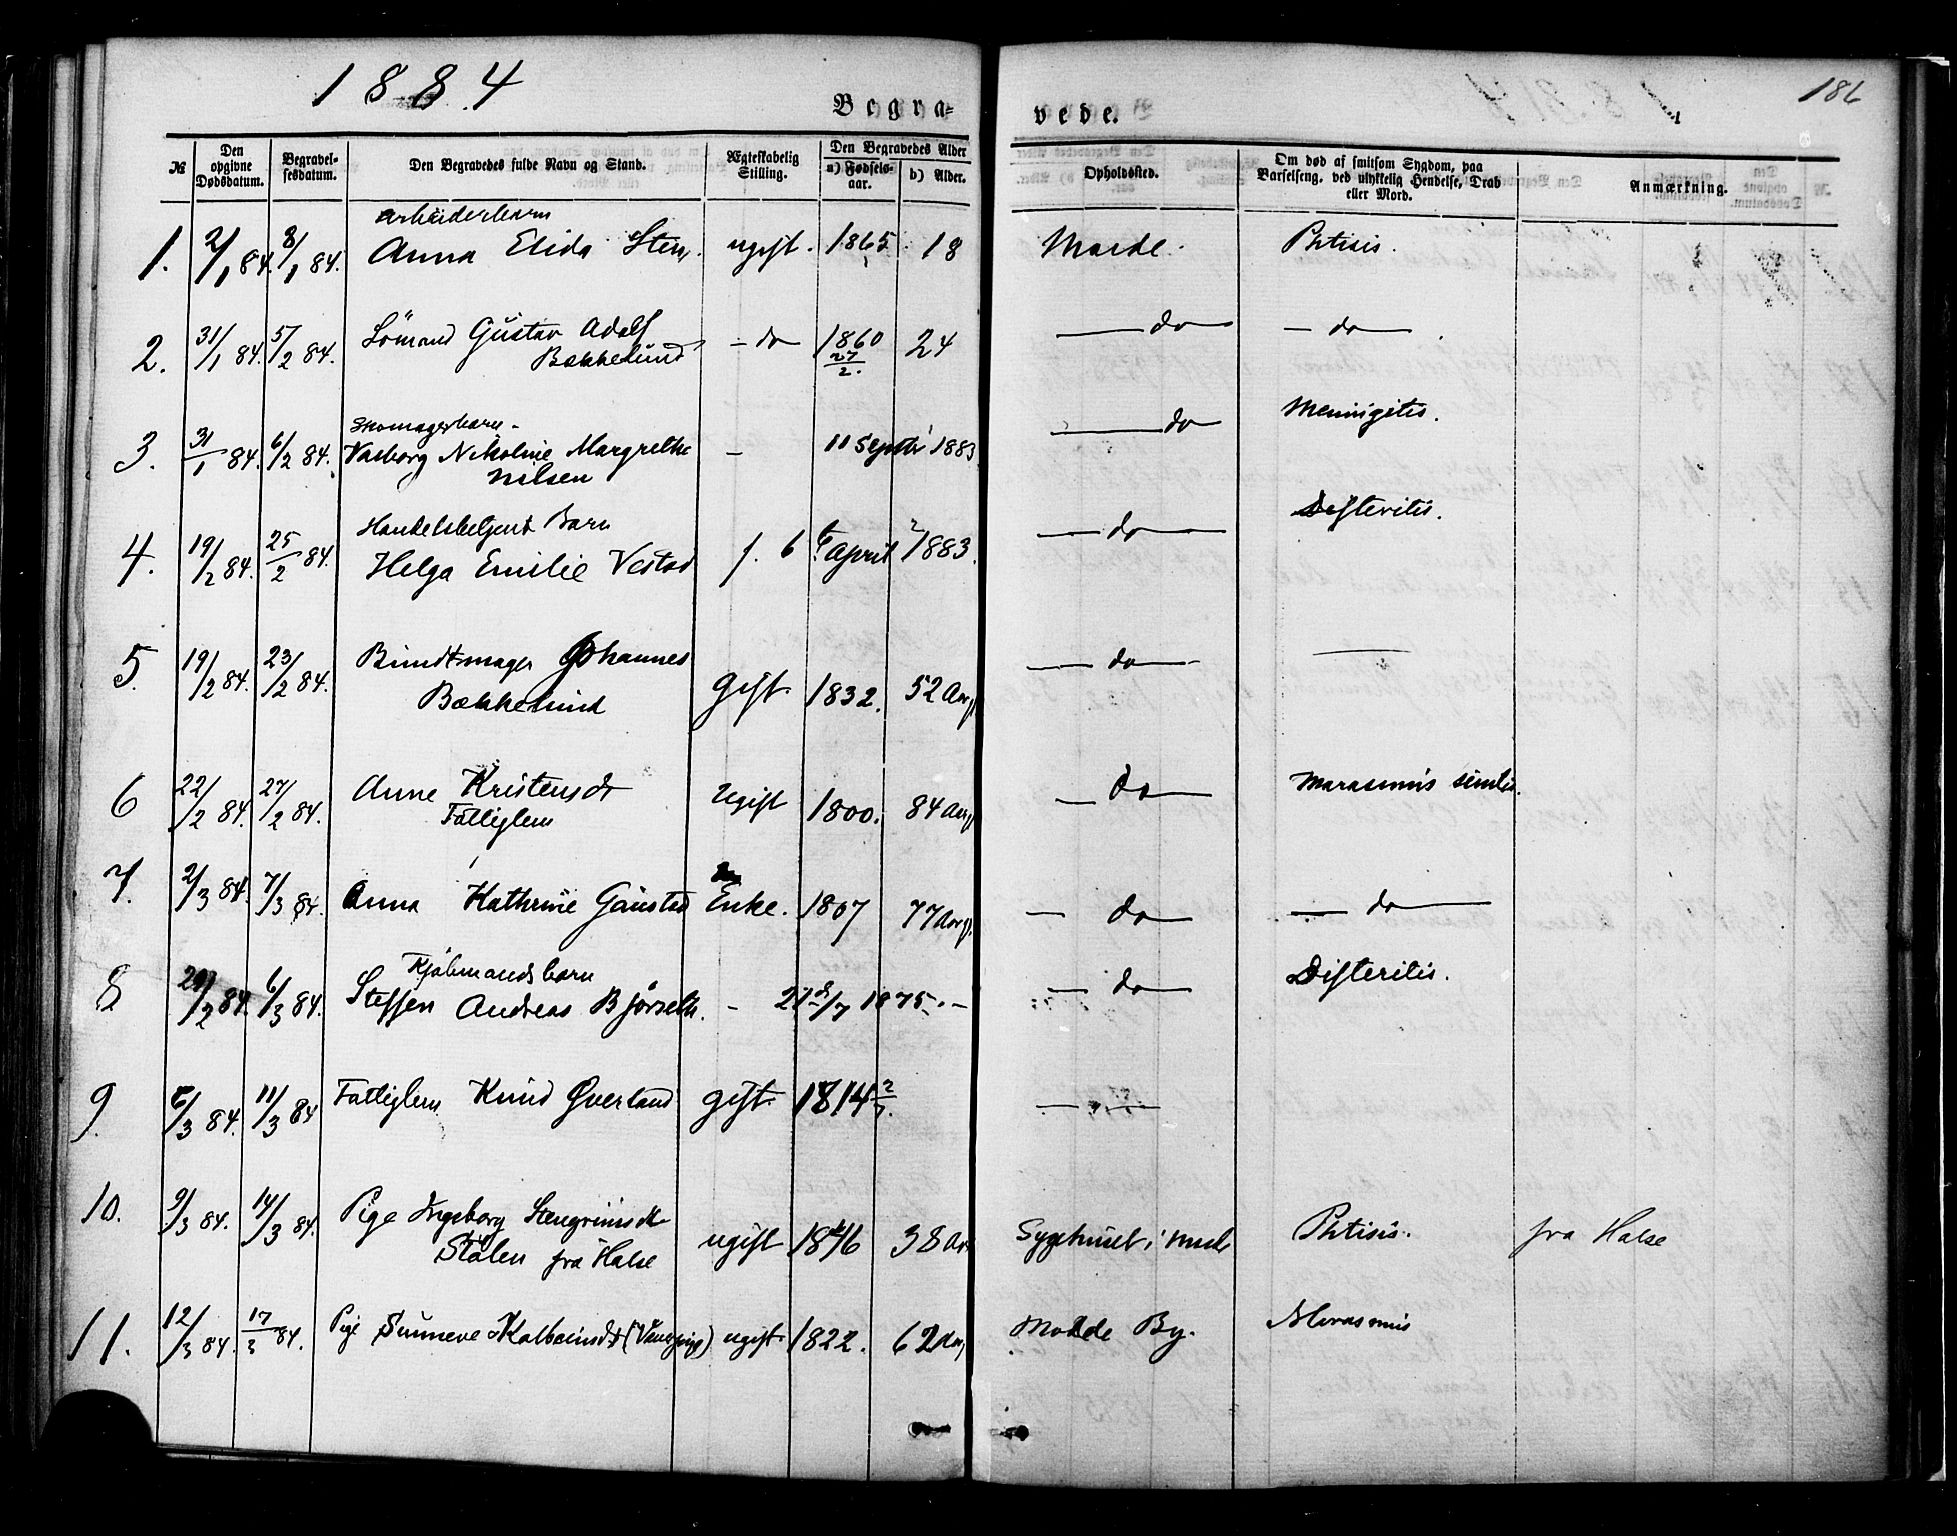 1884
Begra-
vede.
186
№
Den opgivne Dødsdatum.
Begravel-sesdatum.
Den Begravedes fulde Navn og Stand.
Ægteskabelig Stilling.
Den Begravedes Alder
a) Fødsels-aar.
b) Alder.
Opholdssted.
Om død af smitsom Sygdom, paa Barselseng, ved ulykkelig Hendelse, Drab eller Mord.
Anmærkning.
arbeiderbarn
1. 2/1 84. 8/1 84. Anna Elida Sten, ugift. 1865. 18 Phtisis.
2. 31/1 84. 5/2 84. Sømand Gustav Adolf Bækkelund - do 1860 27/2. 24 do - do
Skomagerbarn
3. 31/1 84. 6/2 84. Nikoline Margrethe Nilsen - 11 Septbr 1883 do Meningitis.
Barn
4. 19/2 84. 25/2 84. Helga Emilie Vestad f. 6 April 1883. do Difteritis.
5. 19/2 84. 23/2 84. Bundtmager Johannes Bækkelund Gift 1832. 52 Aar do
6 22/2 84. 27/2 84. Anne Kristensdt Fattiglem Ugift 1800. 84 Aar do Marasmus senilis.
7. 2/3 84. 7/3 84. Anna Kathrine Gaustad Enke. 1807 77 Aar do do
Kjøbmandsbarn
8 2/84. 6/3 84. Steffen Andreas Bjørseth. - 1875. - do Difteritis.
9. 6/3 84. 11/3 84 Fattiglem Knud Øverland gift 1814
10. 9/3 84. 14/3 84. Pige Ingeborg Stengrimsdt
Stølen fra Halse ugift 1846 38 Aar Sygehuset i Phtisis. fra Halse
11. 12/3 84. 17/3 84. Pige Sunneve Kolbeinsdt ugift 1822. 62 Aar Molde By. Marasmus